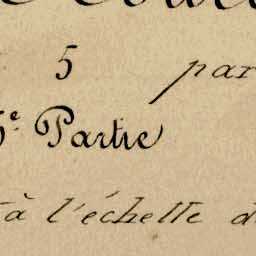 5 par
5e. Partie
à l'échelle d